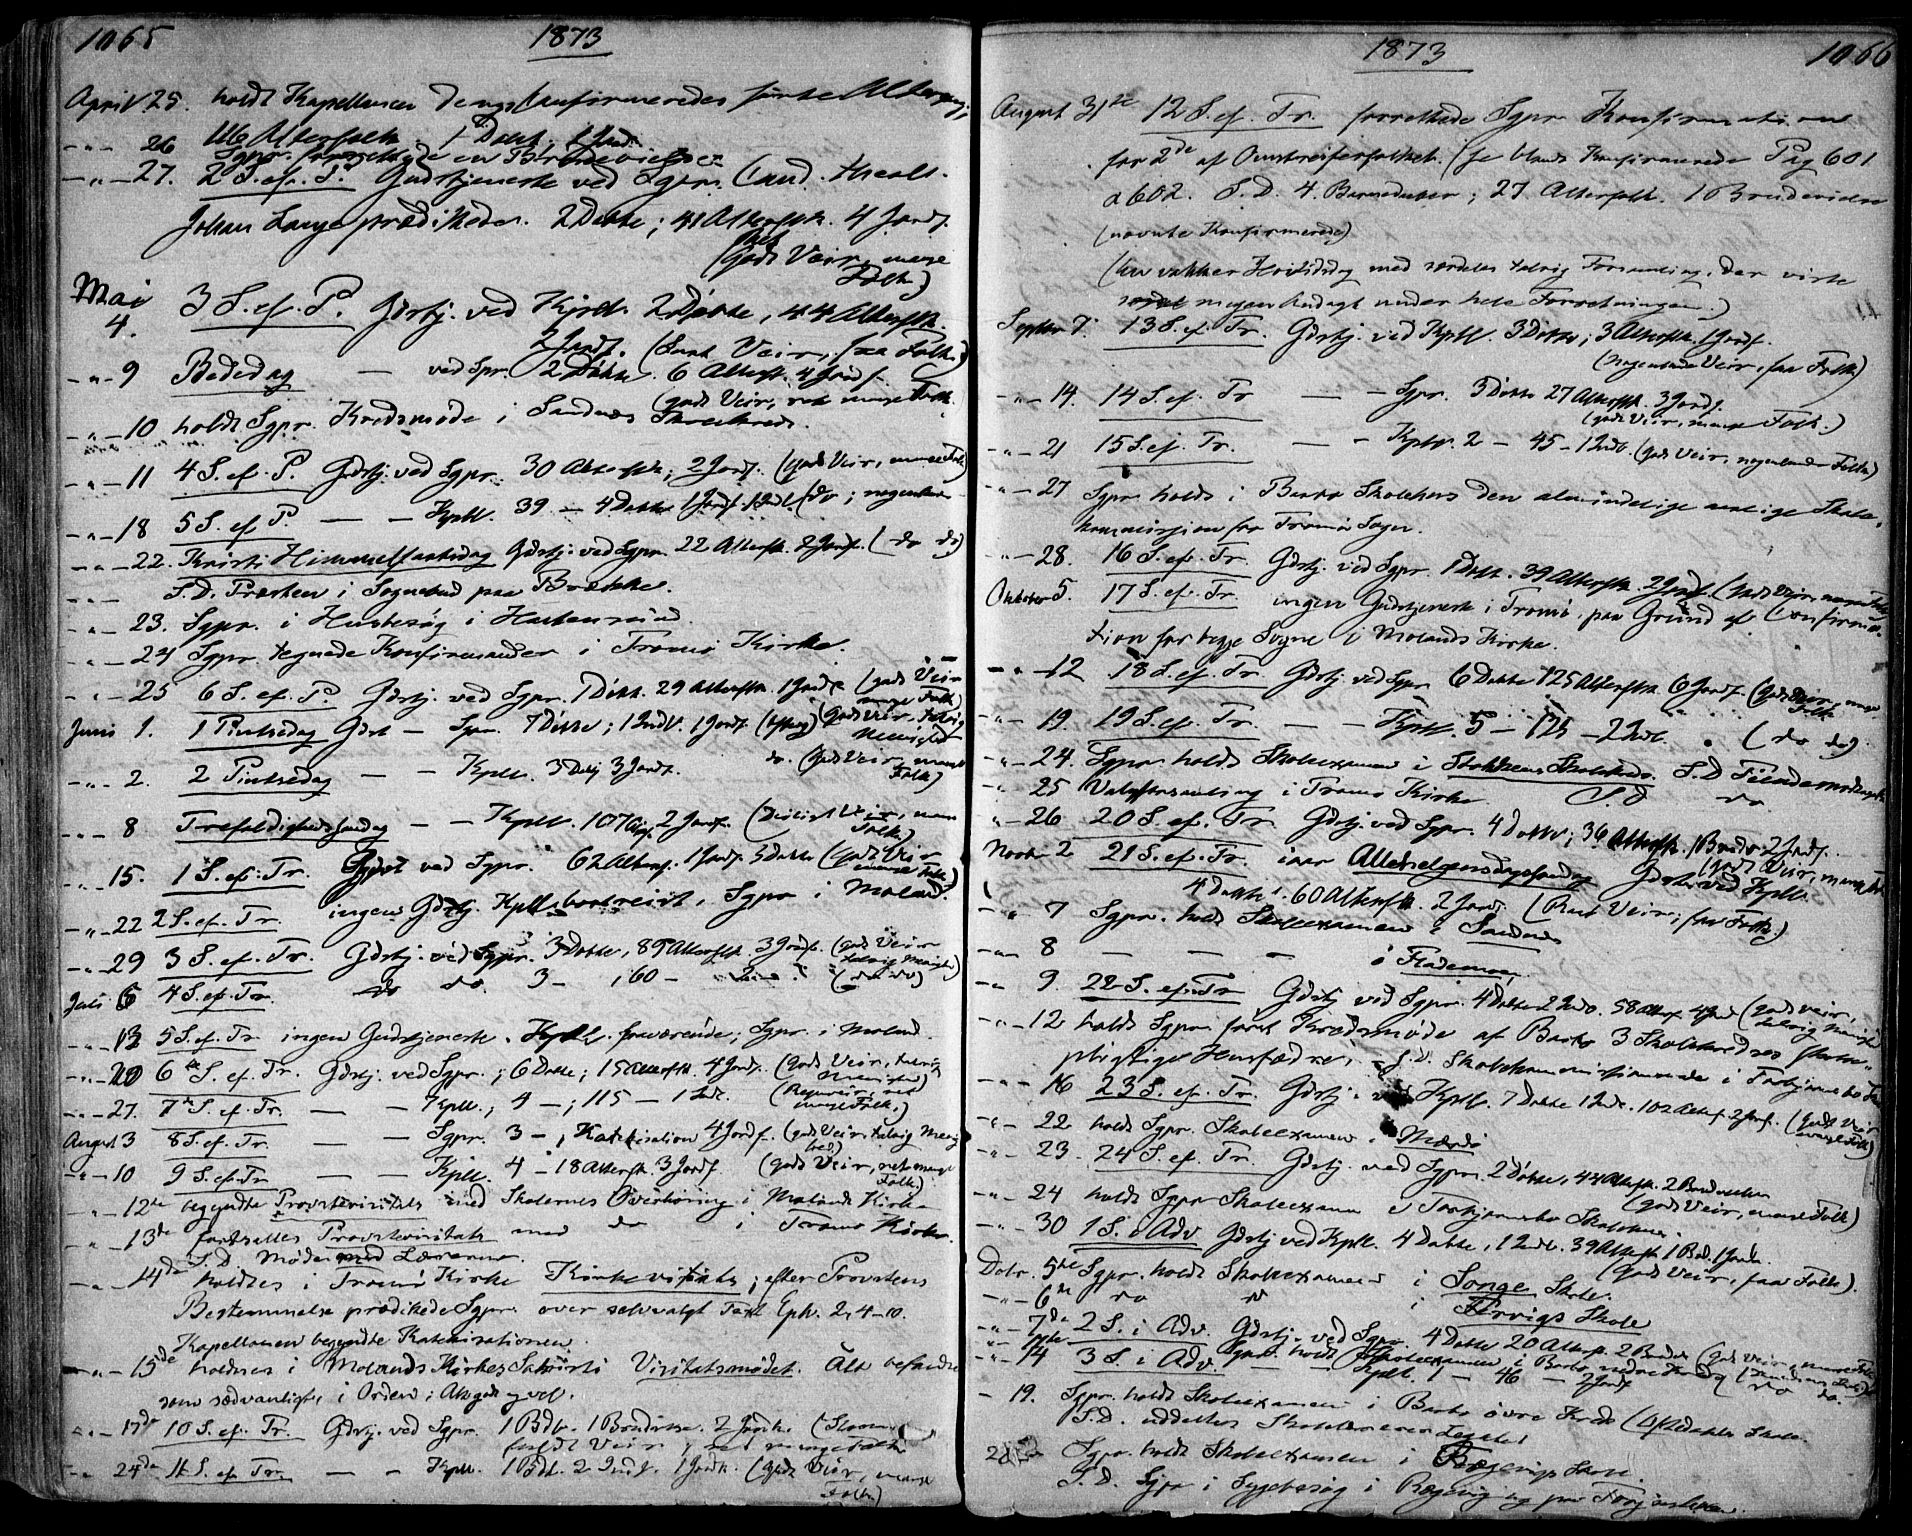 1065
1873
April 25. holdt Kapellanen de nys Confirmeredes første Altergang;
" 26 116 Alterfolk. 1 Døbt, 1 Jord.
Sgpr. forrettede en Brudevielse
" 27. 2 S. ef. P. Gudstjeneste ved Sgpr. Cand. theol.
Johan Lange prædikede. 2 Døbte; 41 Alterfolk. 4 Jordf.
(godt Veir, mange
Folk)
Mai
4. 3 S. ef. P. Gdstj. ved Kpll. 2 Døbte, 44 Alterflk.
2 Jordf. (Smt Veir, faa Folk)
" 9 Bededag — ved Spr. 2 Døbte. 6 Alterflk. 4 Jordf.
(godt Veir, ret mange Folk.
" 10 holdt Sgpr. Kredsmøde i Sandnes Skolekreds.
" 11 4 S. ef. P. Gdstj. ved Sgpr. 30 Alterflk; 2 Jordf. (godt Veir, mange Folk)
" 18 5 S. ef P. — — Kpll. 39 — 4 Døbte 1 Jordf. 1 Indl. (do; nogenlunde
" 22. Kristi Himmelfartsdag Gdstj. ved Sgpr. 22 Alterflk. 2 Jordf. (do do)
" S. D. Præsten i Sognebud paa Brække.
" 23. Sgpr. i Husbesøg i
" 24 Sgpr. tegnede Konfirmander i Tromø Kirke.
" 25 6 S. ef. P. Gdstj. ved Sgpr. 1 Døbt. 29 Alterflk. 1 Jordf. (godt Veir
mange Folk)
Juni 1. 1 Pintsedag Gdst — Spr. 7 Døbte; 1 Indl. 1 Jordf. (godt Veir, talrig
Menighed
" 2. 2 Pintsedag — — Kpll. 3 Døbt 3 Jordf. do. (godt Veir, mange
Folk)
" 8 Trefoldighedssøndag — — Kpll. 107 Alterf. 2 Jordf. (Veir, mange
Folk)
" 15. 1 S. ef. Tr. Gdst ved Sgpr. 62 Alterf. 1 Jordf. 3 Døbte (godt Veir
mange Folk)
" 22 2 S. ef. Tr. ingen Gdstj. Kpll. bortreist, Sgpr i Moland.
" 29 3 S. ef. Tr. Gdstj. ved Sgpr. 3 Døbte, 89 Alterflk 3 Jordf. (godt Veir
talrig Menighed)
Juli 6 4 S. ef. Tr. do do. 3 — , 60 — 2 (do do)
" 13 5 S. ef. Tr. ingen Gudstjeneste. Kpll. fraværende; Sgpr. i Moland.
" 20 6te S. ef. Tr. Gdstj. ved Sgpr.; 6 Døbte; 15 Alterflk 4 Jordf. (godt Veir, talrig
Menighed)
" 27. 7de S. ef. Tr. — — Kpll.; 4 — ; 115 — 1 Indl. (Regnveir, ret
mange Folk.)
August 3 8 S. ef. Tr. — — Sgpr. 3 —, Katekisation 4 Jordf. (godt Veir, talrig Menig
hed)
" 10 9 S. ef. Tr — — Kpll. 4 — 18 Alterflk. 3 Jordf. (godt Veir, ret mange
Folk.)
" 12te begyndte Provstevisitats med Skolernes Overhøring i Molands Kirke
" 13de fortsattes Provstevisitats med do i Tromø Kirke.
S. D. Møde med Lærerne.
" 14de holdtes i Tromø Kirke Kirkevisitats; efter Provstens
Bestemmelse prædikede Sgpr. over selvvalgt Text Eph. 2, 4–10.
Kapellanen begyndte Katekisationen.
" 15de holdtes i Molands Kirkes Sakristi Visitatsmødet. Alt befandtes
som sædvanligt i Orden;
" 17de 10 S. ef. Tr. Gdstj. ved Sgpr. 1 Bdb. 1 Brudvise. 2 Jordk. (Storm
fuldt Veir, ret mange Folk
" 24de 11 S. ef. Tr. — — Kpll. 1 Bdb. 2 Indl. 1 Jordk. (godt Veir, mange
Folk)
1873
1066
August 31te 12 S. ef. Tr. forrettede Sgpr Konfirmation
for 2de af Omstreiferfolket. (se blandt Konfirmerede Pag 601
& 602. S. D. 4. Barnedaaber; 27 Alterfolk. 1 Brudevielse
(nævnte Konfirmerede)
(En vakker Høitidsdag med særdeles talrig Forsamling, der viste
megen Andagt under hele Forretningen.)
Septbr 7. 13 S. ef. Tr. Gdstj. ved Kpll. 3 Døbte; 3 Alterflk. 1 Jordf.
(nogenlunde Veir, faa Folk)
" 14. 14 S. ef. Tr — — Sgpr. 3 Døbte 27 Alterflk. 3 Jordf.
(godt Veir, mange Folk.)
" 21 15 S. ef. Tr. — — Kpll. 2 — 45 — 1 Indl. (godt Veir, nogenlunde Folk)
" 27 Sgpr holdt i Barbo Skolehus den almindelige aarlige Skole-
kommission for Tromø Sogn.
" 28. 16 S. ef. Tr. Gdstj. ved Sgpr. 1 Døbt. 39 Alterflk. 2 Jordf. (godt Veir, mange Folk
Oktober 5. 17 S. ef. Tr. ingen Gudstjeneste i Tromø, paa Grund af Confirma-
tion for begge Sogne i Molands Kirke.
" 12 18 S. ef. Tr. Gdstj. ved Sgpr 6 Døbte 125 Alterflk 6 Jordf. (godt Veir, mange
Folk
" 19. 19 S. ef. Tr. — — Kpll. 5 — 125 — 2 Indl. (do do).
" 24. Sgpr. holdt Skoleexamen i Stokkens Skolekreds.
" 25 Valgforsamling i Tromø Kirke. S. D do
" 26 20 S. ef. Tr. Gdstj. ved Sgpr. 4 Døbte; 36 Alterflk. 1 Brudv. 2 Jordf.
(godt Veir, mange Folk
Novbr 2 21 S. ef. Tr. iaar Allehelgensdagssøndag Gdstj. ved Kpll.
4 Døbte. 60 Alterflk. 2 Jordf (Veir, faa Folk.)
" 7 Sgpr. holdt Skoleexamen i Sandnes
" 8 — — — i Flademoen.
" 9 22 S. ef. Tr Gdstj ved Sgpr. 4 Døbte 2 Indl. 58 Alterf. 4 Jord (godt Veir,
talrig Menighed
" 12 holdt Sgpr først Kredsmøde af Barbo 3 Skolekredses skole-
pligtige Husfædre,
" 16 23 S. ef. Tr. Gdstj. ved Kpll. 7 Døbte 1 Indl. 102 Alterf. 2 Jordf. (godt Veir
mange Folk)
" 22 holdt Sgpr. Skoleexamen i Mærdø
" 23. 24 S. ef. Tr. Gdstj. ved Sgpr. 2 Døbte, 44 Alterflk. 2 Brudvielser
(godt Veir, mange Folk)
" 24 holdt Sgpr Skoleexamen i Torbjørnsbo Skolehus.
" 30 1 S. i Adv Gdstj ved Kpll. 4 Døbte, 1 Indl. 39 Alterflk. 1 Brd. 1 Jordk.
(godt Veir, faa Folk).
Debr. 5te Sgpr. holdt Skoleexamen i Songe Skole.
" 6te do do i Færvigs Skole
" 7de 2 S. i Adv. Gdstj. ved Sgpr. 4 Døbte 20 Alterf. 2 Brudv. (godt Veir, mange Folk
Sgpr. holdt Skoleexamen i Barbo nedre Kreds
" 14 3 S. i Adv. — — Kpll. 1 — 46 — 2 Jordf do do.
" 19. Sgpr. holdt Skoleexamen i Barbo øvre Kreds
S. D. uddeltes
Sgpr. holdt Skoleexamen i Skole.
S. D. Sgpr i Sygebesøg i og paa